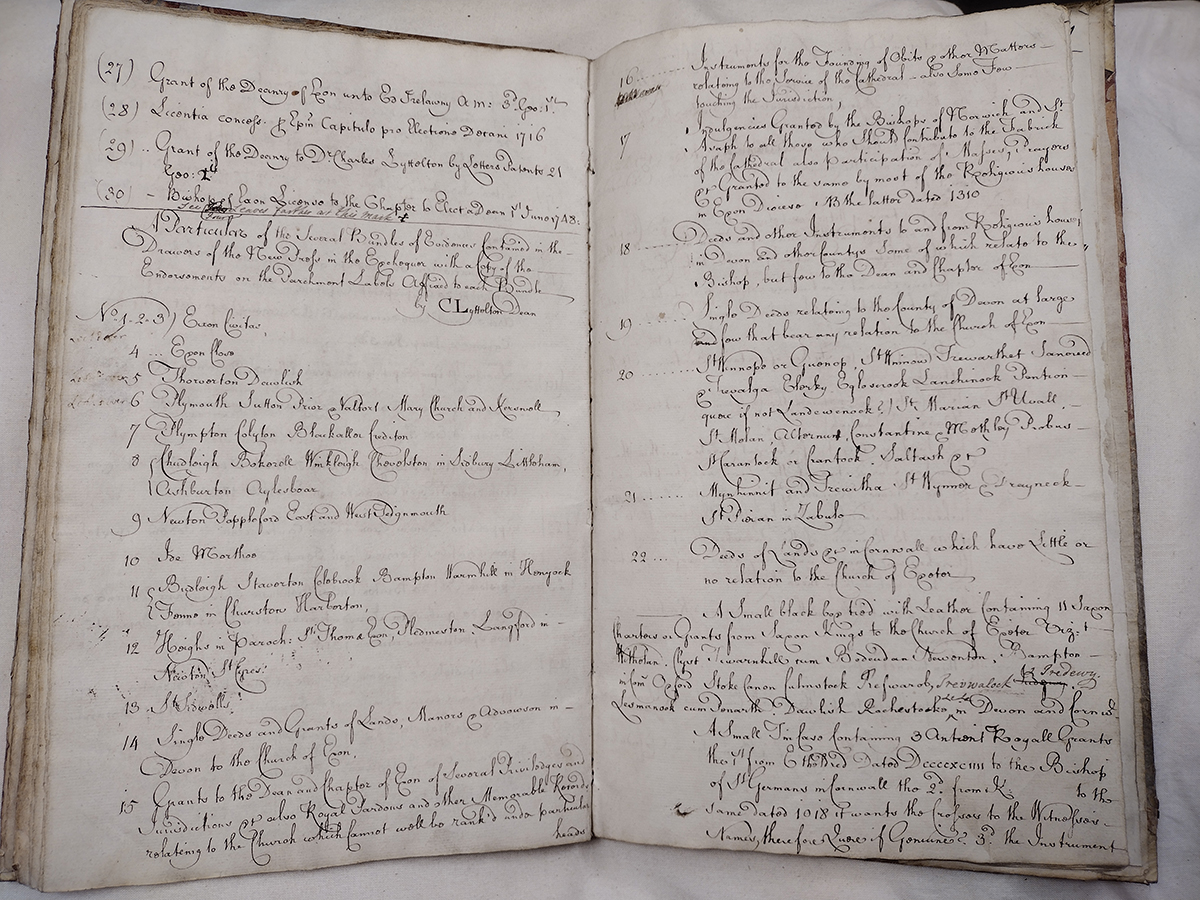 (27) Grant of the Deanry of Exon unto Ed Trelawny A m: 3d. Geo: 1st
(28) Licentia concess. Epm Capitulo pro Electione Decani 1716
(29) .. Grant of the Deanry to Dr. Charles Lyttolton by Letters Patents 21
Geo: 2d
(30) – Bishop of Exon License to the Chapter to Elect a Dean 1st June 1748:
leaves farther at this mark
A Particular of the Several Bundles of Evidences Contained in the
Drawers of the New Press in the Exchequer with a Copy of the
Endorsements on the Parchment Labels Affixed to each Bundle
by C Lyttolton Dean
No. 1-2-3) Exon Civitas,
4 ... Exon close
5 Thorverton Dawlish
6 Plymouth Sutton Prior Valtort Mary Church and Kerswell
7 Plympton Colyton Blackallor Crediton
8 Chudleigh Bokerell Winkleigh Chevolston in Sidbury Littleham,
Ashburton Aylesboar
9 Newton Poppleford East and West Teignmouth
10 Ide Morthoo
11 Budleigh Staverton Colobrook Bampton Warmhill in Henyock
Fenno in Churston Harborton,
12 Heighs in Paroch: St. Thom Exon, Pledmeston, Langford in –
Newton St. Cyres
13 St. Sidwells
14 Single Deeds and Grants of Lands, Manors & Advowson in –
Devon to the Church of Exon,
15 Grants to the Dean and Chapter of Exon of Several Priviledges and
Jurisdictions &c also Royal Pardons and other Memorable Records
relating to the Church which cannot well be rank'd under particular
heads
16 ........ Instruments for the Founding of Obits & other Matters
relating to the Service of the Cathedral – also Some Few
touching the Jurisdiction,
17 Indulgencies Granted by the Bishops of Norwich and St
Asaph to all those who Should Contribute to the Fabrick
of the Cathedral also participation of Masses, prayers
&c Granted to the same by most of the Religious houses
in Exon Diocese NB the latter dated 1310
18 ........ Deeds and other Instruments to and from Religious houses
in Devon and other Countys Some of which relate to the
Bishop, but few to the Dean and Chapter of Exon
19 ........ Single Deeds relating to the County of Devon at large
and few that bear any relation to the Church of Exon
20 ........ St. Wennopo or Guonop, St. Winnoud Trewarthet Sancreed
& Trevalga Elerky Egloscrook Lanchinook Pention
quere if not Landewenock?) St. Marian St. Uvall
St. Molan, Alternut, Constantine & Mothley Probus
St. Carantock or Crantock, Saltash &c
21 ....... Mynhinnit and Trewitha St. Wynner & Trayneck
St. Pieran in Zabulo
22 ... Deeds of Lands &c in Cornwall which have Little or
no relation to the Church of Exeter
A Small black box tied with Leather Containing 11 Saxon
Charters or Grants from Saxon Kings to the Church of Exeter Vizt.
Hitholan, Clyst Tiwarnhill cum Bodeudan Newenton, Bampton
in Com Oxford Stoke Canon Culmstock Trefwarob, Trevwalock Tredewy.
Lesmanock cum Pouarth Dawlish Rachestocke in Devon and Cornw.
A Small Tin Case Containing 3 Antient Royall Grants
the 1st. from Ethelred Dated DCCCCXCIIII to the Bishop
of St. Germans in Cornwall the 2d. from K. to the
same dated 1018 it wants the Crosses to the Witnesses
Names, therefore Quere if Genuine? 3d. the Instrument